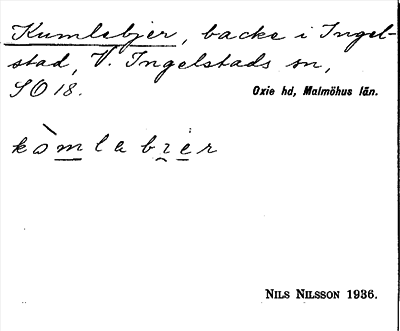 Kumlebjer, backe i Ingel-
stad, V. Ingelstads sn,
SO 18. Oxie hd, Malmöhus län.
kòmlabier
NILS NILSSON 1936.